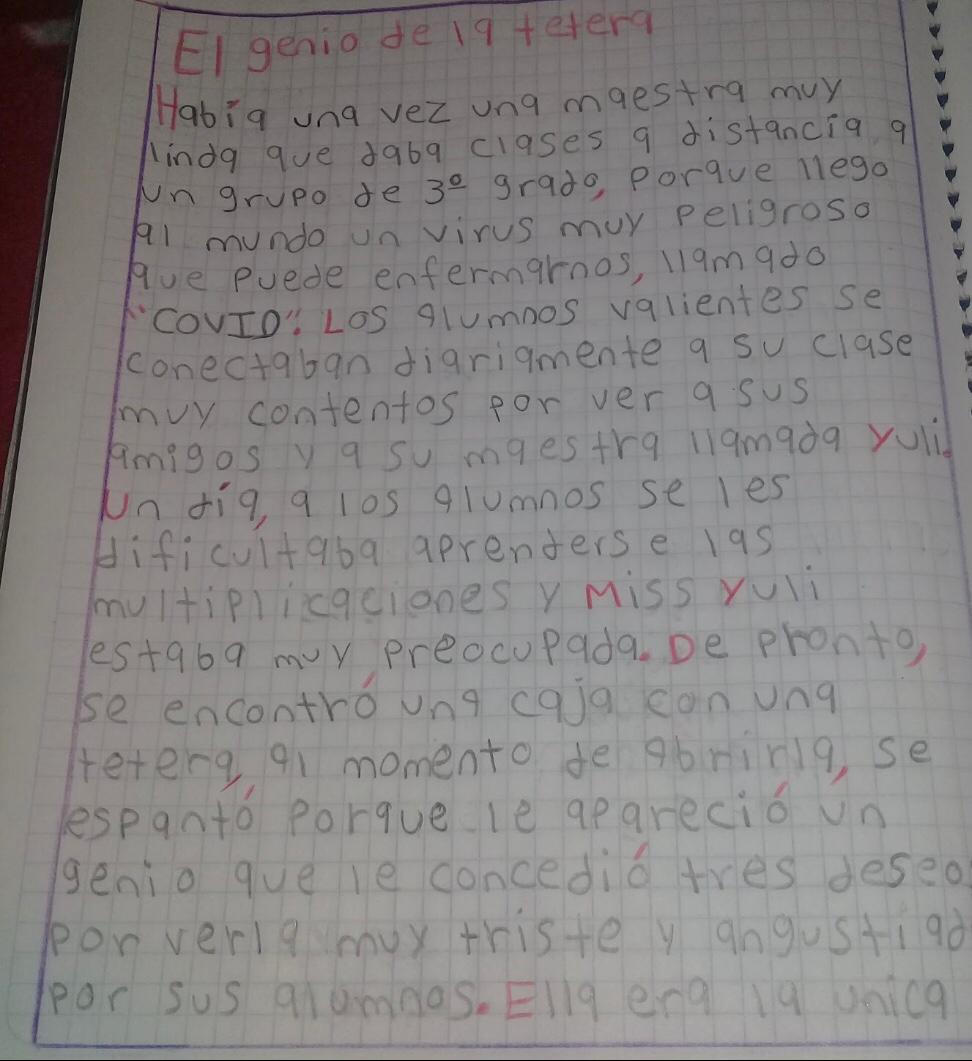 El genio de la tetera
Había una vez una maestra muy
linda que daba clases a distancia a
un grupo de 3º grado, porque llego
al mundo un virus muy peligroso
que puede enfermarnos, llamado
"COVID". Los alumnos valientes se
conectaban diariamente a su clase
muy contentos por ver a sus
amigos y a su maestra llamada Yuli.
Un día, a los alumnos se les
dificultaba aprenderse las
multiplicaciones y Miss Yuli
estaba muy preocupada. De pronto,
se encontró una caja con una
tetera, al momento de abrirla, se
espantó porque le apareció un
genio que le concedió tres deseo
por verla muy triste y angustiad
por sus alumnos. Ella era la unica